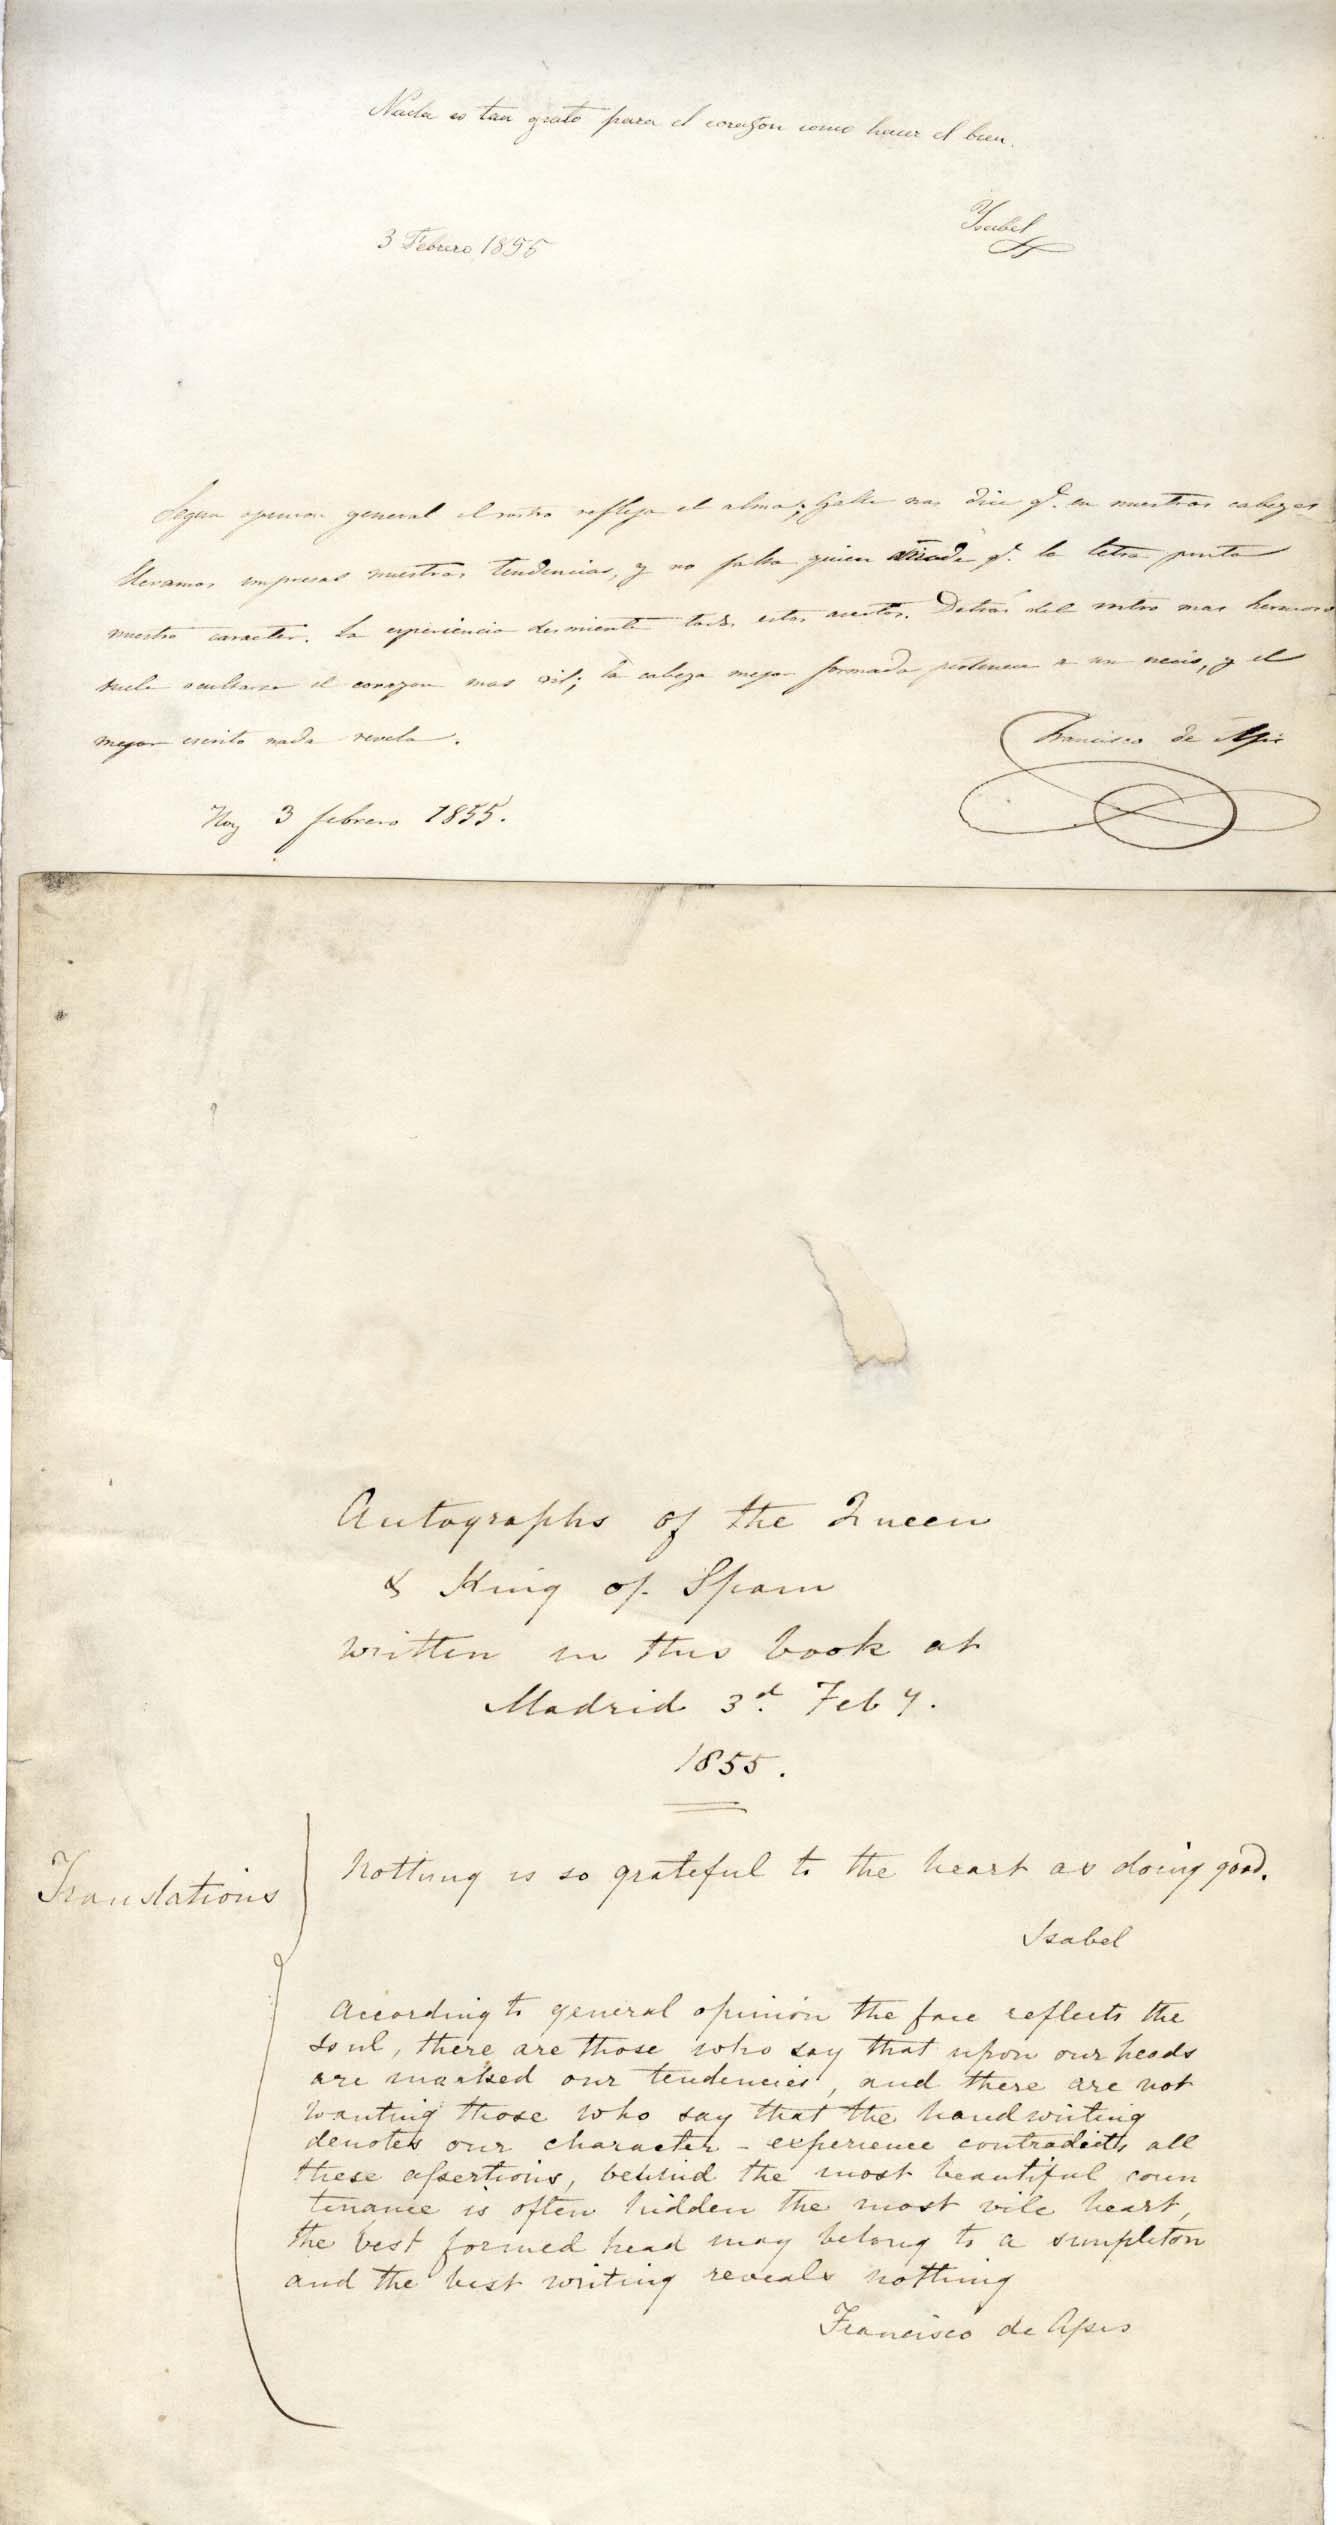 Nada es tan grato para el corazon como hacer el bien.
3 Febrero 1855
Isabel
Segun opinion general el rostro refleja el alma; Galle nos dice q.e en nuestras cabezas
llevamos impresas nuestras tendencias, y no falta quien añade q.e la letra pinta
nuestro caracter. La esperiencia desmiente todos estos asertos. Detras del rostro mas hermoso
suele ocultarse el corazon mas vil; la cabeza mejor formada pertenece a un necio, y el
mejor escrito nada revela.
Francisco de Asis
Hoy 3 febrero 1855.
Autographs of the Queen
& King of Spain
written in this book at
Madrid 3d. Feby.
1855.
Translations
Nothing is so grateful to the heart as doing good.
Isabel
According to general opinion the face reflects the
soul, there are those who say that upon our heads
are marked our tendencies, and there are not
wanting those who say that the handwriting
denotes our character - experience contradicts all
these assertions, behind the most beautiful coun
tenance is often hidden the most vile heart,
the best formed head may belong to a simpleton
and the best writing reveals nothing
Francisco de Assis